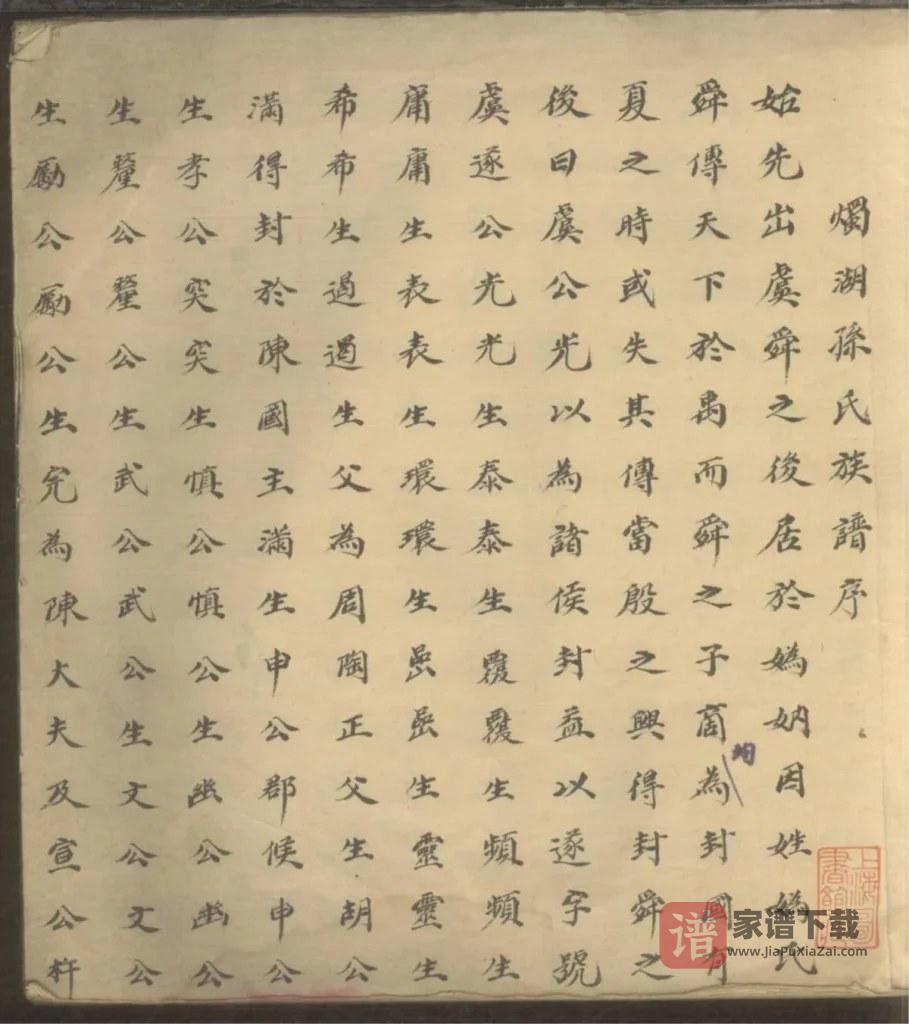 燭湖孫氏族譜序
始先出虞舜之後居於媯妠因姓媯氏
舜傳天下於禹而舜之子商為封國有
均
夏之時或失其傳當殷之興得封舜之
後曰虞公光以為諸侯封益以遂字號
虞遂公光光生泰泰生覆覆生頻頻生
庸庸生表表生環環生喦喦生靈靈生
希希生遏遏生父為周陶正父生胡公
滿得封於陳國主滿生申公郡候申公
生孝公突突生慎公慎公生幽公幽公
生釐公釐公生武公武公生文公文公
生勵公勵公生完為陳大夫及宣公杵
上海圖書館藏
譜
家谱下载
www.JiaPuXiaZai.com